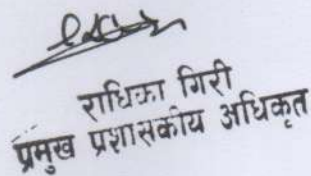 राधिका गिरी
प्रमुख प्रशासकीय अधिकृत